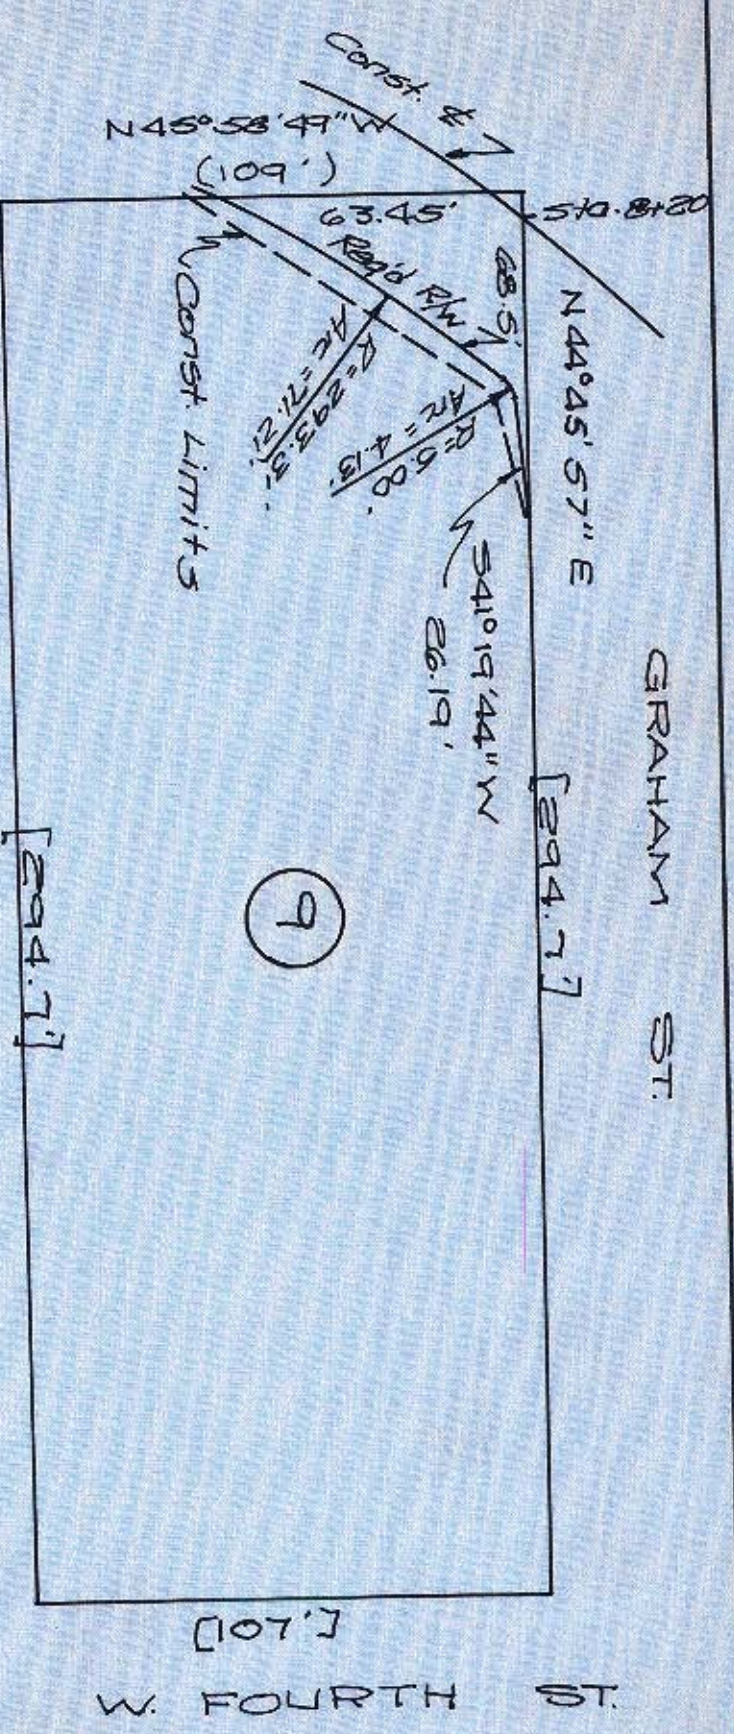 Const. ℄
N45°58'49"W
(109')
63.45'
Sta. 8+20
68.5'
Req'd R/W
N 44°45'57" E
Const. Limits
R= 293.31'
Arc = 71.21'
R= 5.00'
Arc = 4.13'
S41°19'44"W
26.19'
GRAHAM ST.
[294.7']
[294.7']
9
[107']
W. FOURTH ST.